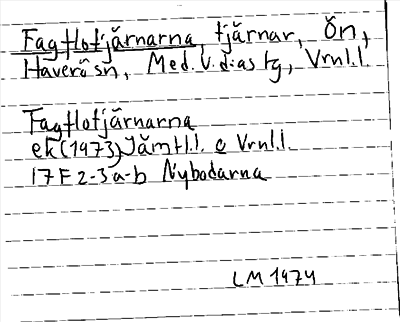 Fagflotjärnarna, tjärnar, ön,
Haverö sn, Med. V. d:as tg, Vrnl.l.
Fagflotjärnarna
ek (1973) Jämtl.l. o Vrnl.l.
17 F 2-3 a-b Nybodarna
LM 1974